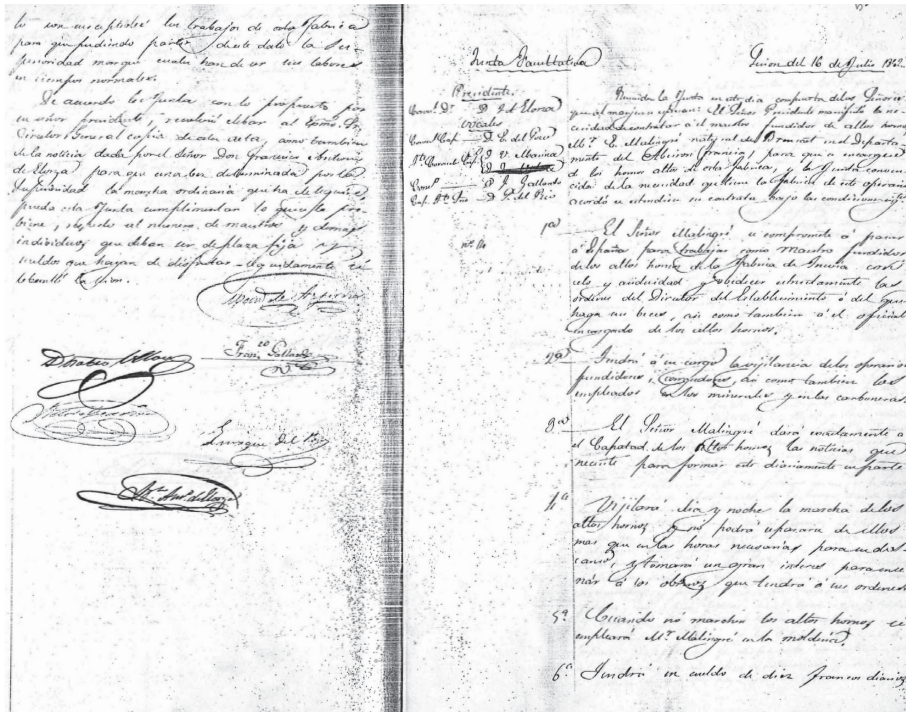 lo son susceptibles los trabajos de esta Fabrica
para que pudiendo partir de este dato la Su-
perioridad marque cuales han de ser sus labores
en tiempos normales.
De acuerdo la Junta con lo propuesto por
su señor presidente, resolvió elevar al Excmo. Di-
rector General copia de esta acta, como tambien
de la noticia dada por el Señor Don Francisco Antonio
de Elorza para que una vez determinada por la
Superioridad la marcha ordinaria que ha de seguirse,
pueda esta Junta cumplimentar lo que esta pre-
biene, respecto al numero de maestros y demas
individuos que deban ser de plaza fija y
sueldos que hayan de disfrutar. Seguidamente se
levantó la sesion.
Fran.co Gallardo
Enrique del Pozo
Junta Facultativa
Sesion del 16 de Julio
Presidente
D. F. A. Elorza
Vocales
D. E. del Pozo
D. F. Gallardo
Reunida la Junta en este dia compuesta de los Señores
que al margen espresan: El Señor Presidente manifestó la ne-
cesidad de contratar á el maestro fundidor de altos hornos
Mr. E. Malingré natural de en el Departa-
mento del (Francia), para que se encargue
de los hornos altos de esta fabrica, y la Junta conven-
cida de la necesidad que tiene la fabrica de este operario
acordó se estendiese su contrata bajo las condiciones sigtes
1ª El Señor Malingré se compromete á pasar
á España para trabajar como Maestro fundidor
de los altos hornos de la Fabrica de Trubia con
celo y asiduidad y obedecer esactamente las
ordenes del Director del Establecimiento ó del que
haga sus veces, asi como tambien á el oficial
encargado de los altos hornos.
2ª Tendrá á su cargo la vigilancia de los operarios
fundidores, cargadores, asi como tambien los
empleados en los minerales y en las carboneras.
3ª El Señor Malingré dará esactamente á
el Capataz de los altos hornos las noticias que
necesite para formar este diariamente su parte
4ª Vijilara dia y noche la marcha de los
altos hornos y no podrá separarse de ellos
mas que en las horas necesarias para su des-
canso, y tomará un gran interes para ense-
ñar á los obreros que tendrá á sus ordenes
5ª Cuando no marchen los altos hornos se
empleará Mr. Malingré en la molderia.
6ª Tendrá un sueldo de diez francos diarios